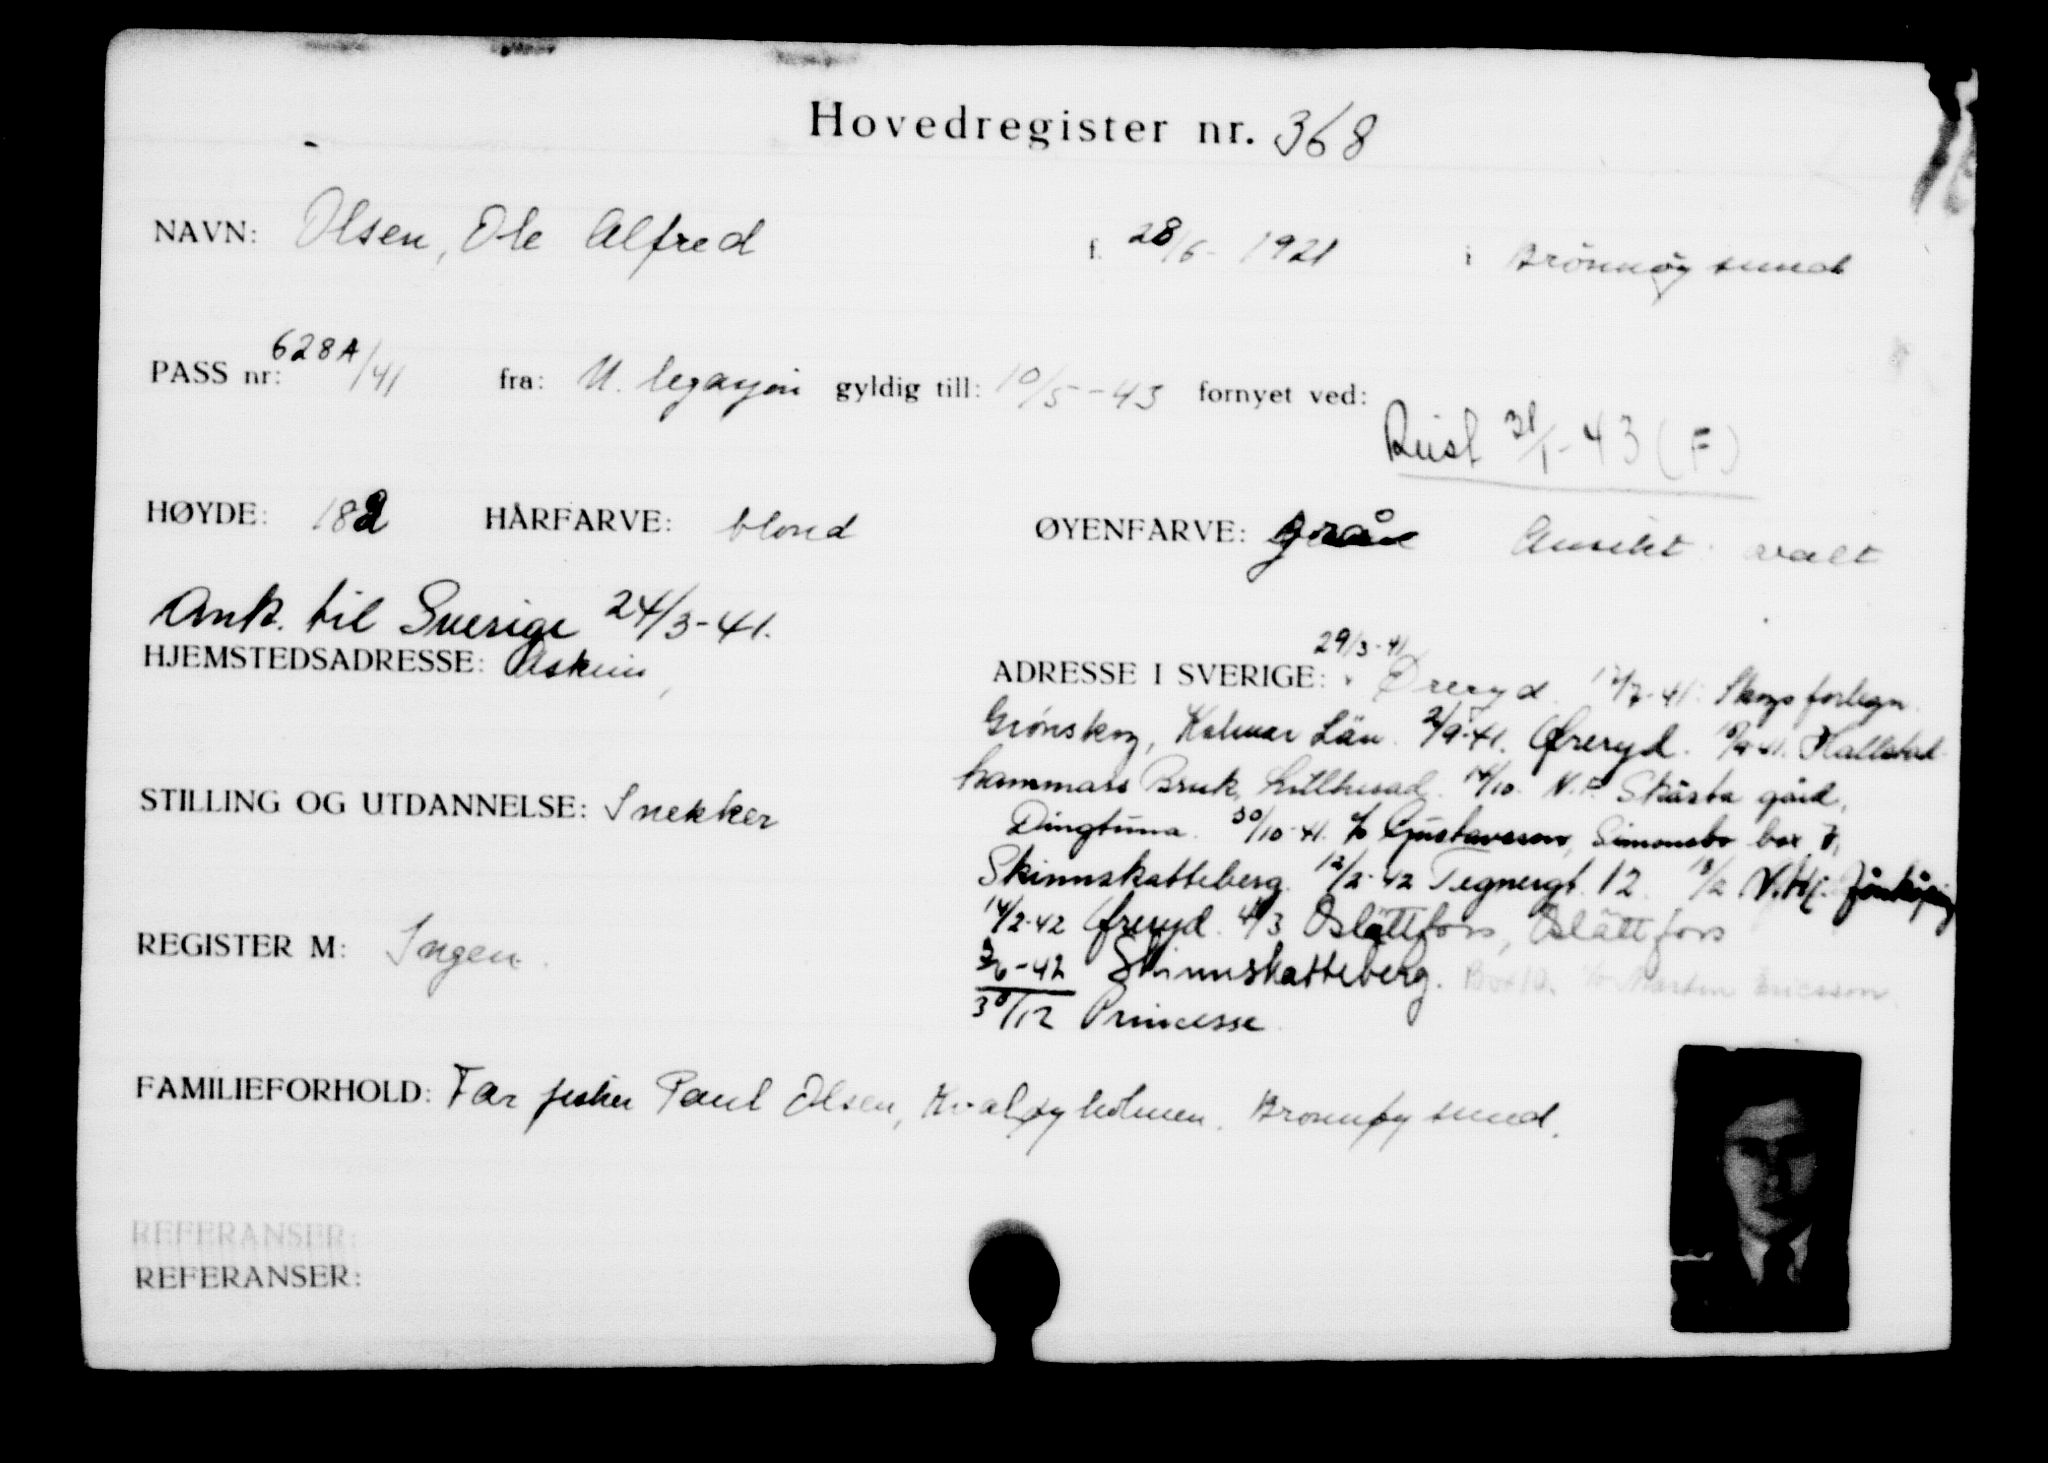 Hovedregister nr. 368
NAVN: Olsen, Ole Alfred f. 28/6- 1921 i Brönnöysund
PASS nr: 628A/41 fra: N. legasjon gyldig till: 10/5-43 fornyet ved:
Reist 31/1-43 (F)
HØYDE: 182 HÅRFARVE: blond ØYENFARVE: grå Ansikt: ovalt
Ank. til Sverige 24/3-41.
HJEMSTEDSADRESSE: Askim, ADRESSE I SVERIGE: 29/3-41 Øreryd. 17/7-41: Skogsforlegn.
Grönskog, Kalmar Län. 2/9-41. Øreryd. Hallsta-
hammars Bruk, 14/10. N.F. Skästa gård,
STILLING OG UTDANNELSE: Snekker
Dingtuna. 30/10-41. c/o Gustavsson, Simonsbo box 7,
Skinnskatteberg. 12/2-42 Tegnergt. 12. 13/2 Jönköping
14/2-42 Øreryd. 4/3 Oslättfors, Oslättfors
REGISTER M: Ingen.
/6-42 Skinnskatteberg. c/o Ericsson.
30/12 Princesse
FAMILIEFORHOLD: Far fisker Paul Olsen, Kvaløyholmen. Brønnøysund.
REFERANSER:
REFERANSER: